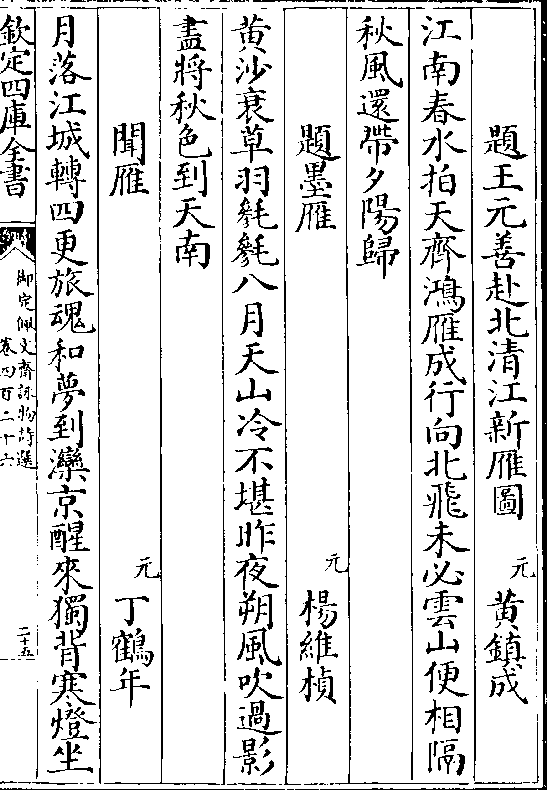 題王元善赴北清江新雁圖　元　黄鎮成
江南春水拍天齊鴻雁成行向北飛未必雲山便相隔
秋風還帶夕陽歸
題墨雁　元　楊維楨
黄沙衰草羽毿毿八月天山冷不堪昨夜朔風吹過影
盡將秋色到天南
聞雁　元　丁鶴年
月落江城轉四更旅魂和夢到灤京醒來獨背寒燈坐
欽定四庫全書
御定佩文齋詠物詩選
卷四百二十六
二十五